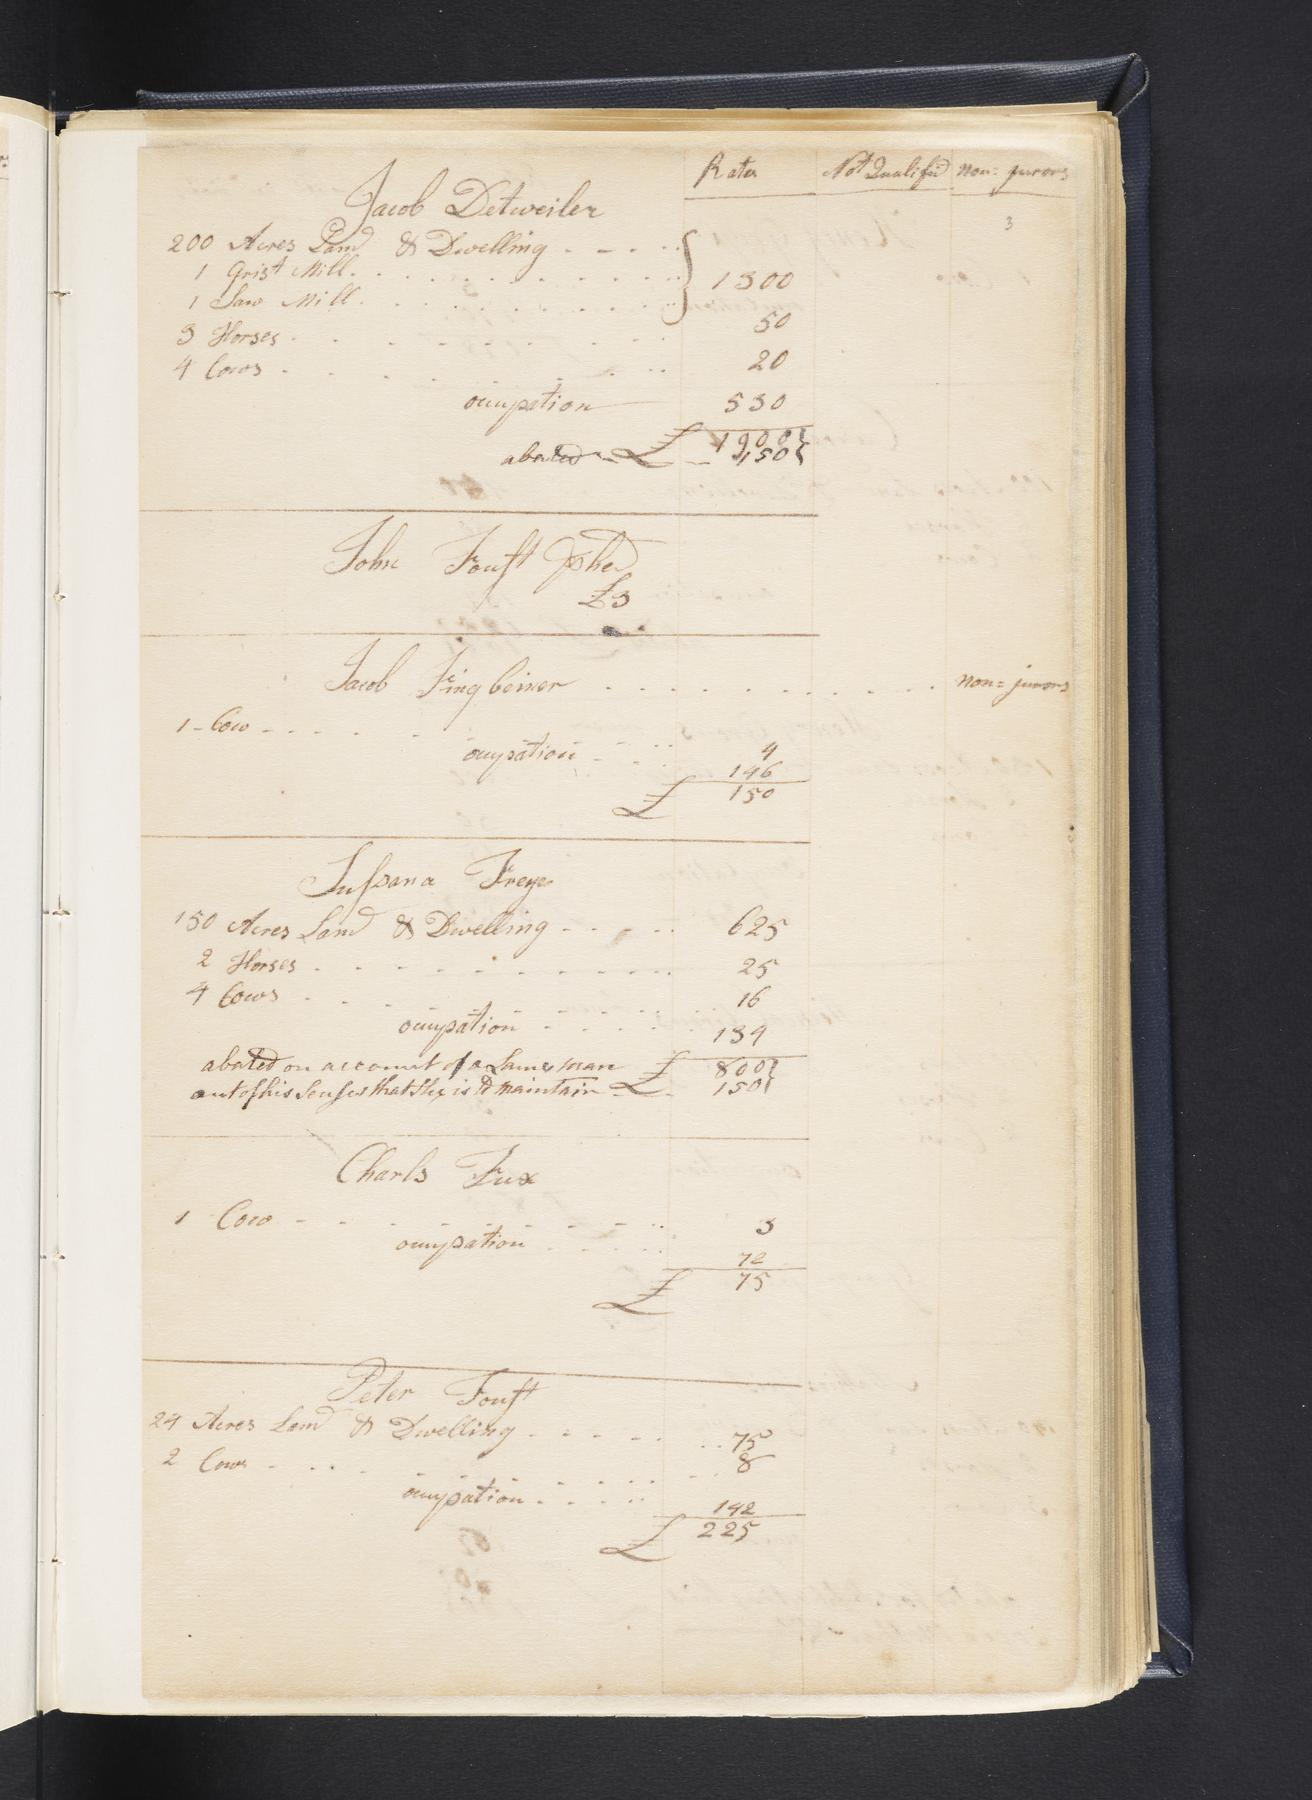 Rates Not Qualified non=jurors
3
Jacob Detweiler
200 Acres Land & Dwelling
1 Grist Mill 1300
1 Saw Mill
3 Horses 50
4 Cows 20
occupation 530
£ 1900
abated £ 150
John Foust
£3
Jacob Fingbeiner non=jurors
1 Cow 4
occupation 146
£ 150
Sussana Freye
150 Acres Land & Dwelling 625
2 Horses 25
4 Cows 16
occupation 134
abated on account of a Lame man £ 800
out of his Senses that She is to maintain £ 150
Charls Fux
1 Cow 3
occupation 72
£ 75
Peter Foust
24 Acres Land & Dwelling 75
2 Cows 8
occupation 142
£ 225